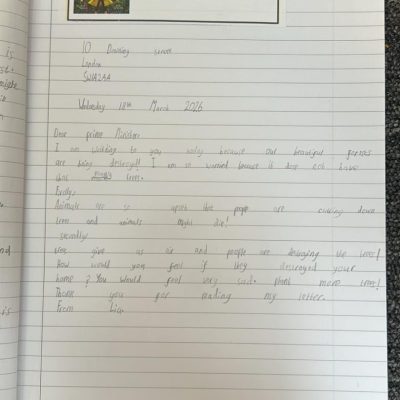 10 Downing street
London
SW1A2AA
Wednesday 18th March 2026
Dear prime Minister
I am writing to you today because our beautiful forests
are being destroyed! I am so worried because it dose not have
that trees.
Firstly
Animals are so upset that people are cutting down
trees and animals might die!
secondly
tree give us air and people are destroying the trees!
How would you feel if they destroyed your
home? You would feel very sad. plant more trees!
Thank you for reading my letter.
From